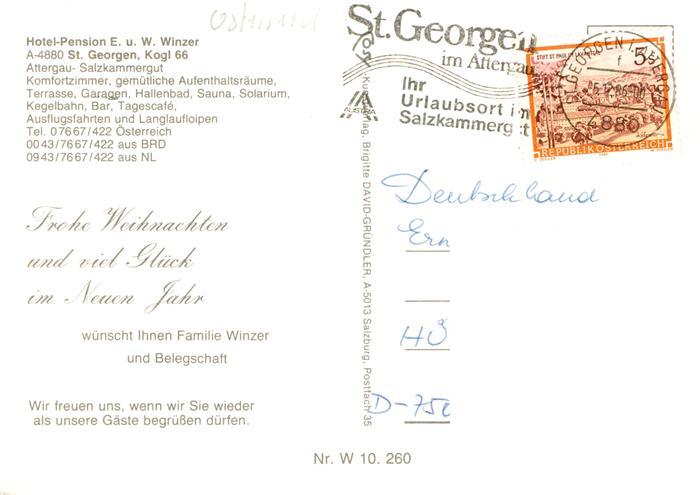 Österreich
Hotel-Pension E. u. W. Winzer
A-4880 St. Georgen, Kogl 66
Attergau- Salzkammergut
Komfortzimmer, gemütliche Aufenthaltsräume,
Terrasse, Garagen, Hallenbad, Sauna, Solarium,
Kegelbahn, Bar, Tagescafé,
Ausflugsfahrten und Langlaufloipen
Tel. 07667/422 Österreich
0043/7667/422 aus BRD
0943/7667/422 aus NL
Frohe Weihnachten
und viel Glück
im Neuen Jahr
wünscht Ihnen Familie Winzer
und Belegschaft
Wir freuen uns, wenn wir Sie wieder
als unsere Gäste begrüßen dürfen.
Brigitte DAVID-GRÜNDLER, A-5013 Salzburg, Postfach 35
St. Georgen
im Attergau
Ihr
Urlaubsort im
Salzkammergut
AUSTRIA
STIFT ST. PAUL IM LAVANTTAL
5S
REPUBLIK ÖSTERREICH
4880
Deutschland
Ern
HÖ
D-750
Nr. W 10. 260